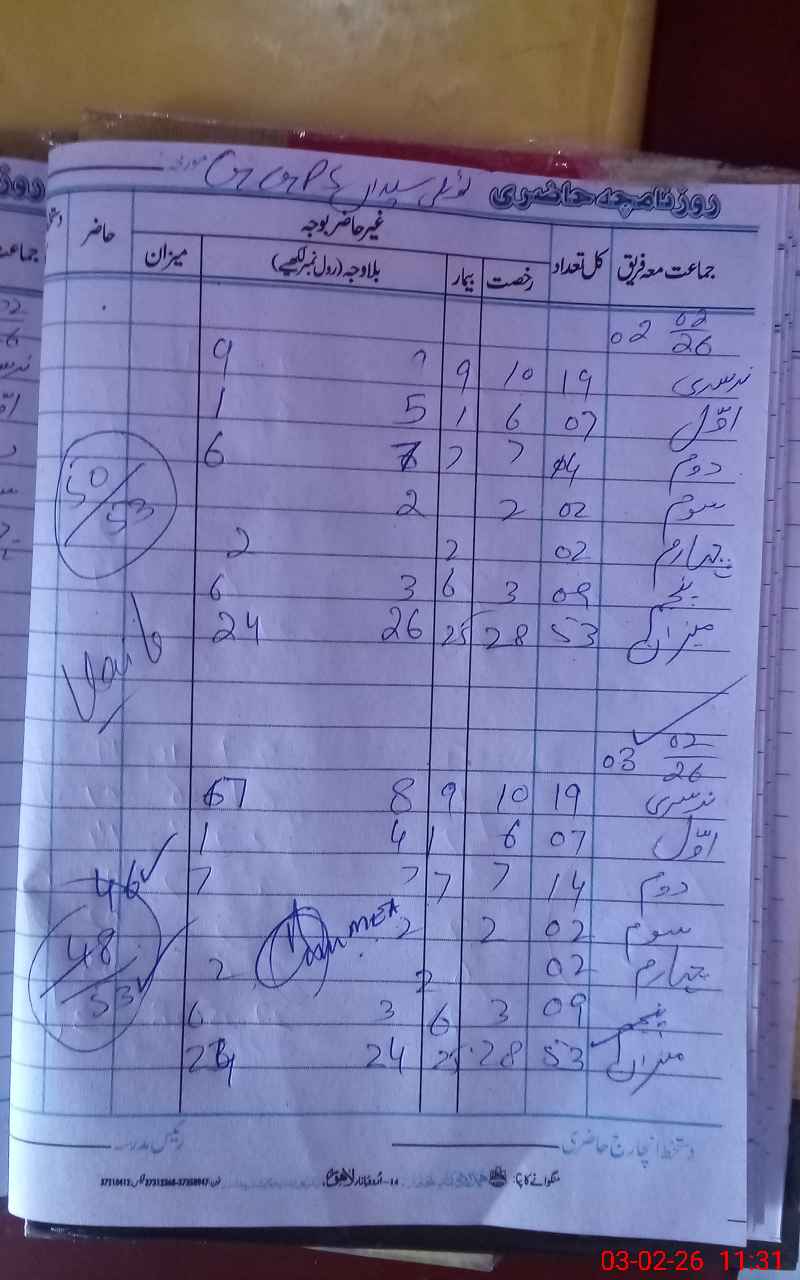 روزنامچہ حاضری GGPS سیداں مورخہ
جماعت معہ فریق کل تعداد غیر حاضر بوجہ حاضر
رخصت بیمار بلاوجہ (رول نمبر لکھیے) میزان
02 02/26
نرسری 19 10 9 9
اوّل 07 6 1 5 1
دوم 14 7 7 7 6
سوم 02 2 2
چہارم 02 2 2
پنجم 09 3 6 3 6
میزان 53 28 25 26 24
50/53
03 02/26
نرسری 19 10 9 8 7
اوّل 07 6 1 4 1
دوم 14 7 7 7 7
46
سوم 02 2 2
MEA
چہارم 02 2 2
48/53
پنجم 09 3 6 3 6
میزان 53 28 25 24 24
دستخط انچارج حاضری رئیس مدرسہ
منگوانے کا پتہ: 14-اُردو بازار لاہور
03-02-26 11:31